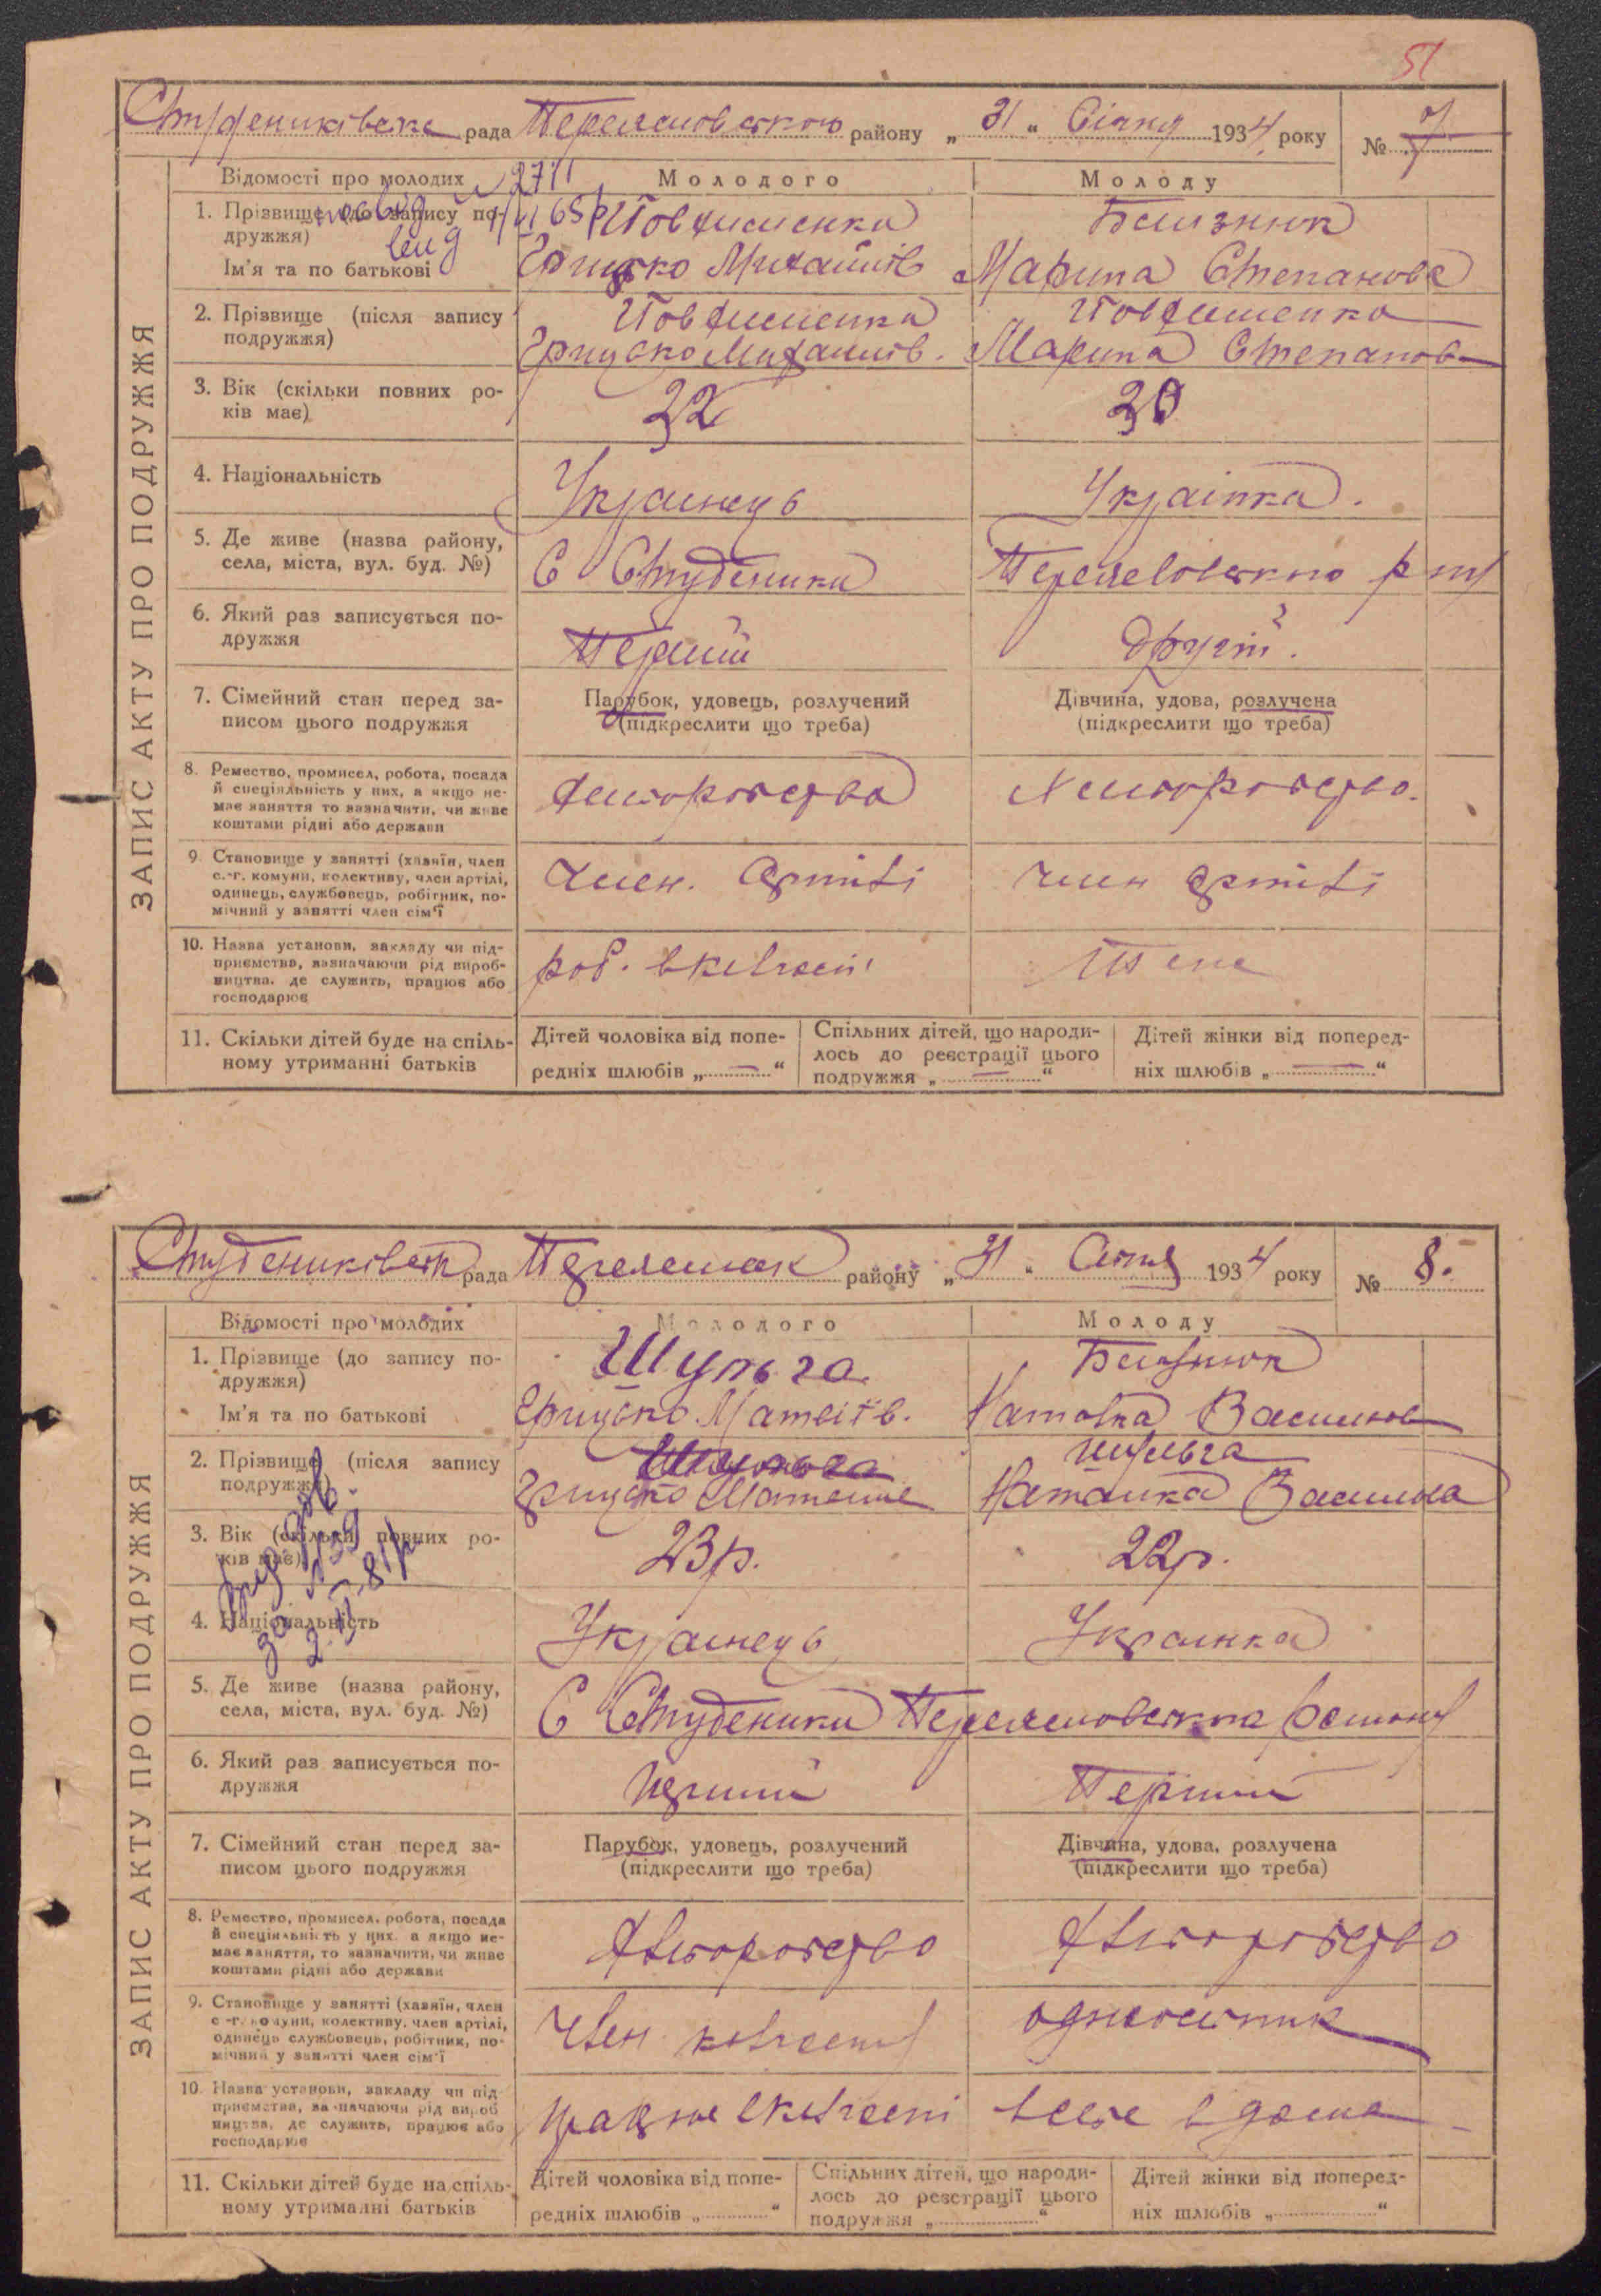 51
Студениківська рада району „ 31 “ Січня 1934 року № 7
Відомості про молодих Молодого Молоду
1. Прізвище (до запису по-
дружжя)
Близнюк
Ім'я та по батькові Грицько Михайлів Марина Степанова
2. Прізвище (після запису
подружжя)
Грицько Михайлів. Марина Степанов
3. Вік (скільки повних ро-
ків має)
32 30
4. Національність Українець Українка.
5. Де живе (назва району,
села, міста, вул. буд. №)
С Студеники
6. Який раз записується по-
дружжя
Перший Другій.
7. Сімейний стан перед за-
писом цього подружжя
Парубок, удовець, розлучений
(підкреслити що треба)
Дівчина, удова, розлучена
(підкреслити що треба)
8. Ремество, промисел, робота, посада
й спеціяльність у них, а якщо не-
має заняття то зазначити, чи живе
коштами рідні або держави
9. Становище у занятті (хазяїн, член
с.-г. комуни, колективу, член артілі,
одинець, службовець, робітник, по-
мічний у занятті член сім'ї
Член. Артілі член артілі
10. Назва установи, закладу чи під-
приємства, зазначаючи рід вироб-
ництва, де служить, працює або
господарює
роб. в колгоспі
11. Скільки дітей буде на спіль-
ному утриманні батьків
Дітей чоловіка від попе-
редніх шлюбів „ — “
Спільних дітей, що народи-
лось до реєстрації цього
подружжя „ — “
Дітей жінки від поперед-
ніх шлюбів „ — “
ЗАПИС АКТУ ПРО ПОДРУЖЖЯ
рада району „ 31 “ Січня 1934 року № 8.
Відомості про молодих Молодого Молоду
1. Прізвище (до запису по-
дружжя)
Шульга Близнюк
Ім'я та по батькові Грицько Матвіїв. Наталка Василов
2. Прізвище (після запису
подружжя)
Шульга Шульга
Грицько Наталка Василова
3. Вік (скільки повних ро-
ків має)
23р. 22р.
4. Національність Українець Украинка
5. Де живе (назва району,
села, міста, вул. буд. №)
С Студеники
6. Який раз записується по-
дружжя
Перший Перший
7. Сімейний стан перед за-
писом цього подружжя
Парубок, удовець, розлучений
(підкреслити що треба)
Дівчина, удова, розлучена
(підкреслити що треба)
8. Ремество, промисел, робота, посада
й спеціяльність у них, а якщо не-
має заняття, то зазначити, чи живе
коштами рідні або держави
9. Становище у занятті (хазяїн, член
с.-г. комуни, колективу, член артілі,
одинець службовець, робітник, по-
мічний у занятті член сім'ї
Член колгоспу одноосібник
10. Назва установи, закладу чи під
приємства, зазначаючи рід вироб
ництва, де служить, працює або
господарює
працює в колгоспі
11. Скільки дітей буде на спіль-
ному утриманні батьків
Дітей чоловіка від попе-
редніх шлюбів „ “
Спільних дітей, що народи-
лось до реєстрації цього
подружжя „ “
Дітей жінки від поперед-
ніх шлюбів „ “
ЗАПИС АКТУ ПРО ПОДРУЖЖЯ